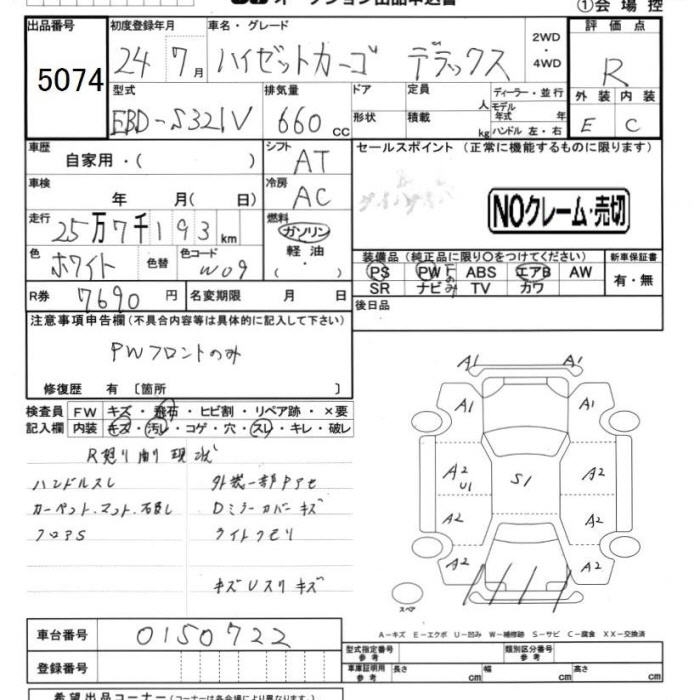 オークション出品申込書
①会場控
出品番号
5074
初度登録年月
24 7月
車名・グレード
ハイゼットカーゴ デラックス
2WD
・
4WD
評価点
R
外装 内装
E C
型式
EBD-S321V
排気量
660 cc
ドア
形状
定員 人
積載 kg
ディーラー・並行
モデル年式 年
ハンドル 左・右
車歴
自家用・( )
シフト
AT
セールスポイント (正常に機能するものに限ります)
NOクレーム・売切
車検
年 月( 日)
冷房
AC
走行
25万7千193km
燃料
ガソリン
軽油
・( )
色
ホワイト
色替
色コード
W09
装備品 (純正品に限り○をつけてください)
PS PW ABS エアB AW
SR ナビ TV カワ
新車保証書
有・無
R券
7690円
名変期限 月 日
後日品
注意事項申告欄 (不具合内容等は具体的に記入して下さい)
PWフロントのみ
修復歴 有 〔箇所 〕
検査員
記入欄
FW キズ・飛石・ヒビ割・リペア跡・×要
内装 キズ・汚レ・コゲ・穴・スレ・キレ・破レ
ハンドルスレ
フロアS
Dミラーカバーキズ
ライトクモリ
A1 A1
A1 A1
A2 U1
S1
A2
A2 A2
A2 A2
スペア
A-キズ E-エクボ U-凹み W-補修跡 S-サビ C-腐食 XX-交換済
車台番号
0150722
登録番号
型式指定番号 参考
類別区分番号 参考
車庫証明用 参考
長さ cm
幅 cm
高さ cm
希望出品コーナー (コーナーは各会場により異なります)